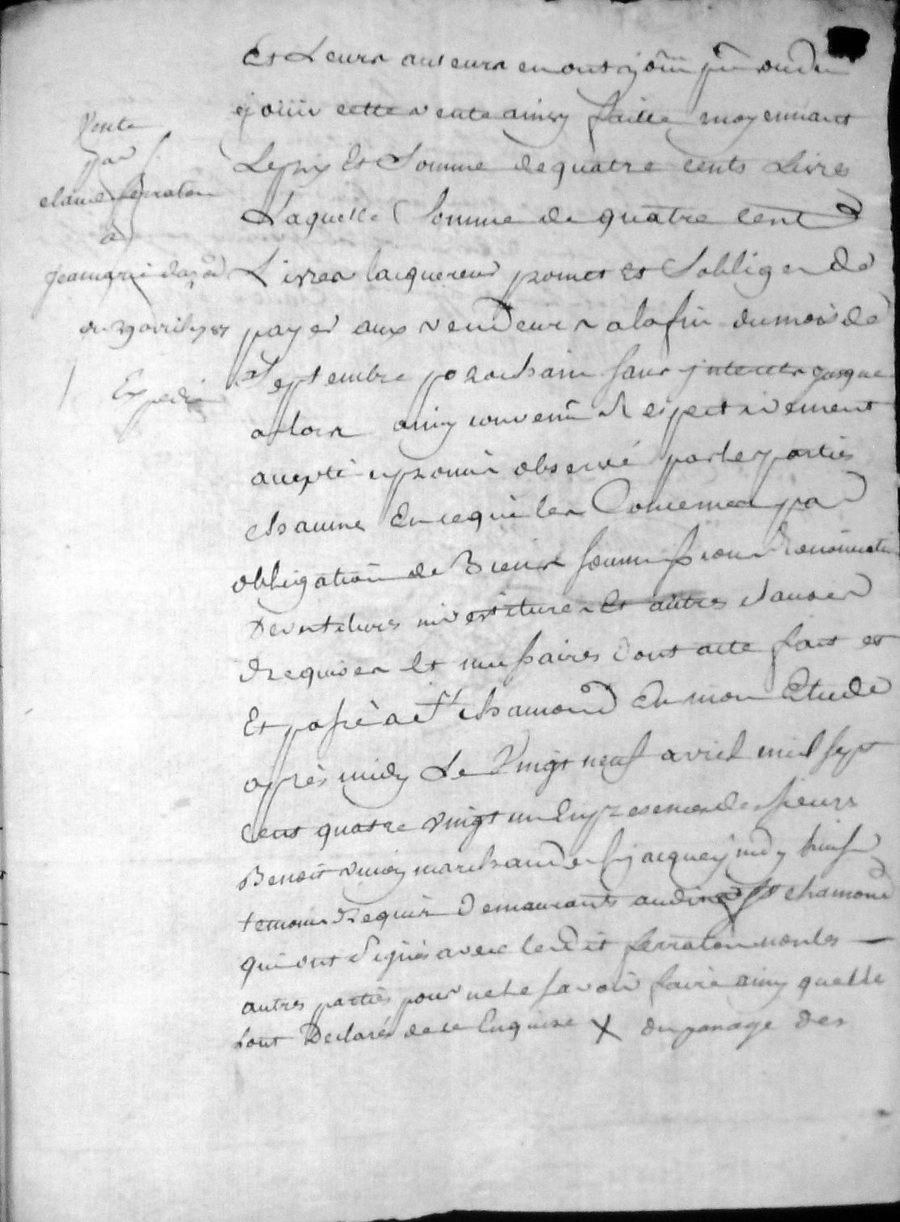 Vente
par
claude ferraton
a
jeanmarie
du 29 avril 1781
Expedié
Et Leurs auteurs en ont joüi pû ou dû
joüir cette vente ainsy faitte moyennant
Le prix Et Somme de quatre cents Livres
Laquelle Somme de quatre cent
Livres lacquereur promet Et Soblige de
payer aux vendeurs a la fin du mois de
Septembre prochain sans interets jusque
alors ainsy convenu Respectivement
accepté promis observé par les parties
chacune En ce qui les Concerne par
obligation de Biens soumissions Renonciations
Devetitures investitures Et autres clauses
Requises Et necessaires dont acte fait et
Et passé a St chamond En mon Etude
après midy Le Vingt neuf avril mil sept
Cent quatre vingt un En presences de sieurs
Benoit marchand et jacques
temoins Requis Demeurants audit St chamond
qui ont signés avec ledit ferraton non les
autres parties pour ne le savoir faire ainsy quelle
Sont Declarés de ce Enquise X du panage des